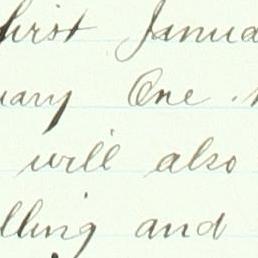 first Janua
uary One
will also
lling and